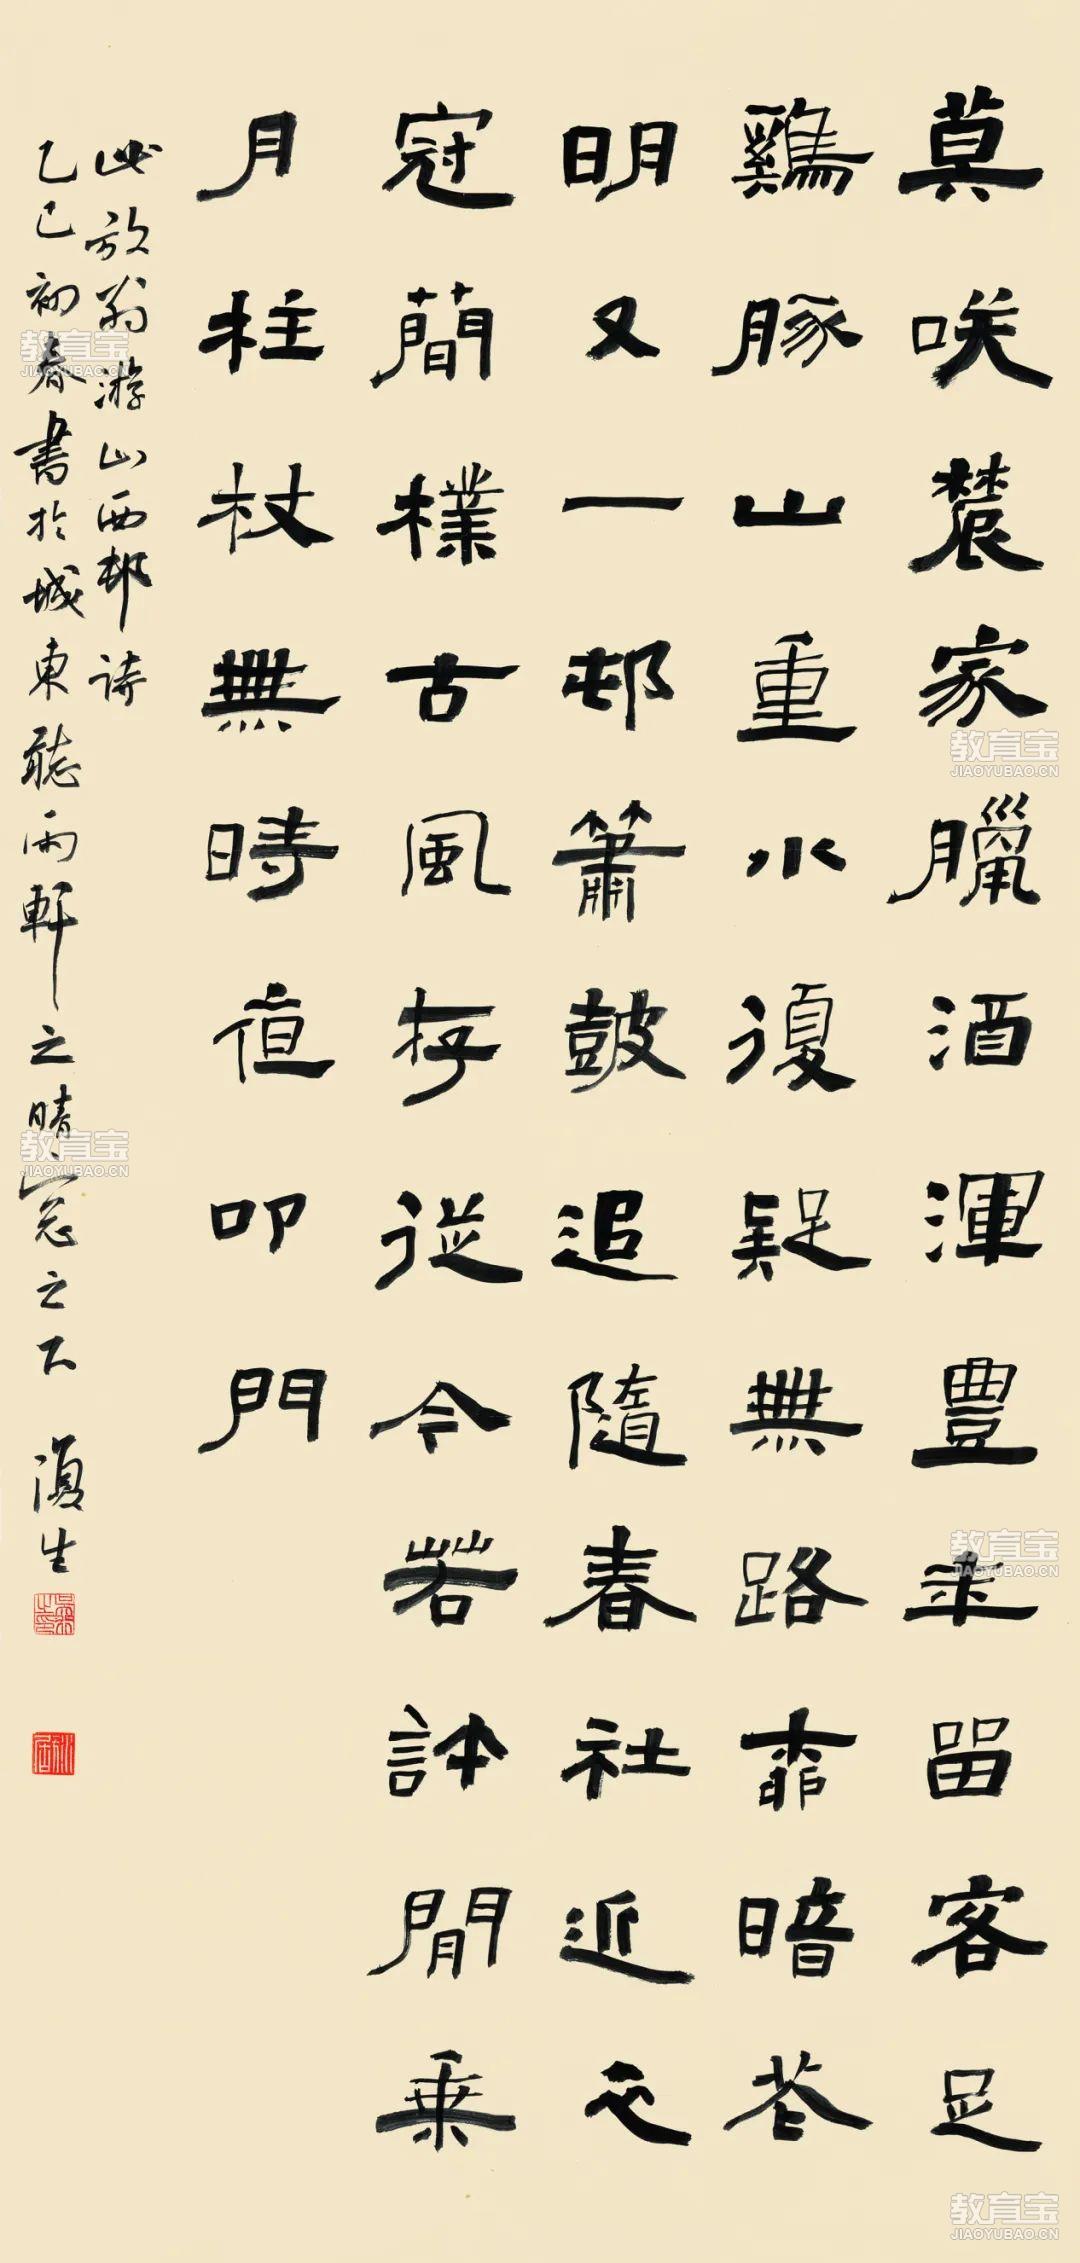 莫咲農家臘酒渾豊年留客足
鷄豚山重水復疑無路桺暗花
明又一邨簫鼓追隨春社近衣
冠簡樸古風存從今若許閒乗
月柱杖無時夜叩門
此放翁游山西邨詩
乙巳初春書於城東聽雨軒之晴窓之下 復生
教育宝
JIAOYUBAO.CN
教育宝
JIAOYUBAO.CN
教育宝
JIAOYUBAO.CN
教育宝
JIAOYUBAO.CN
教育宝
JIAOYUBAO.CN